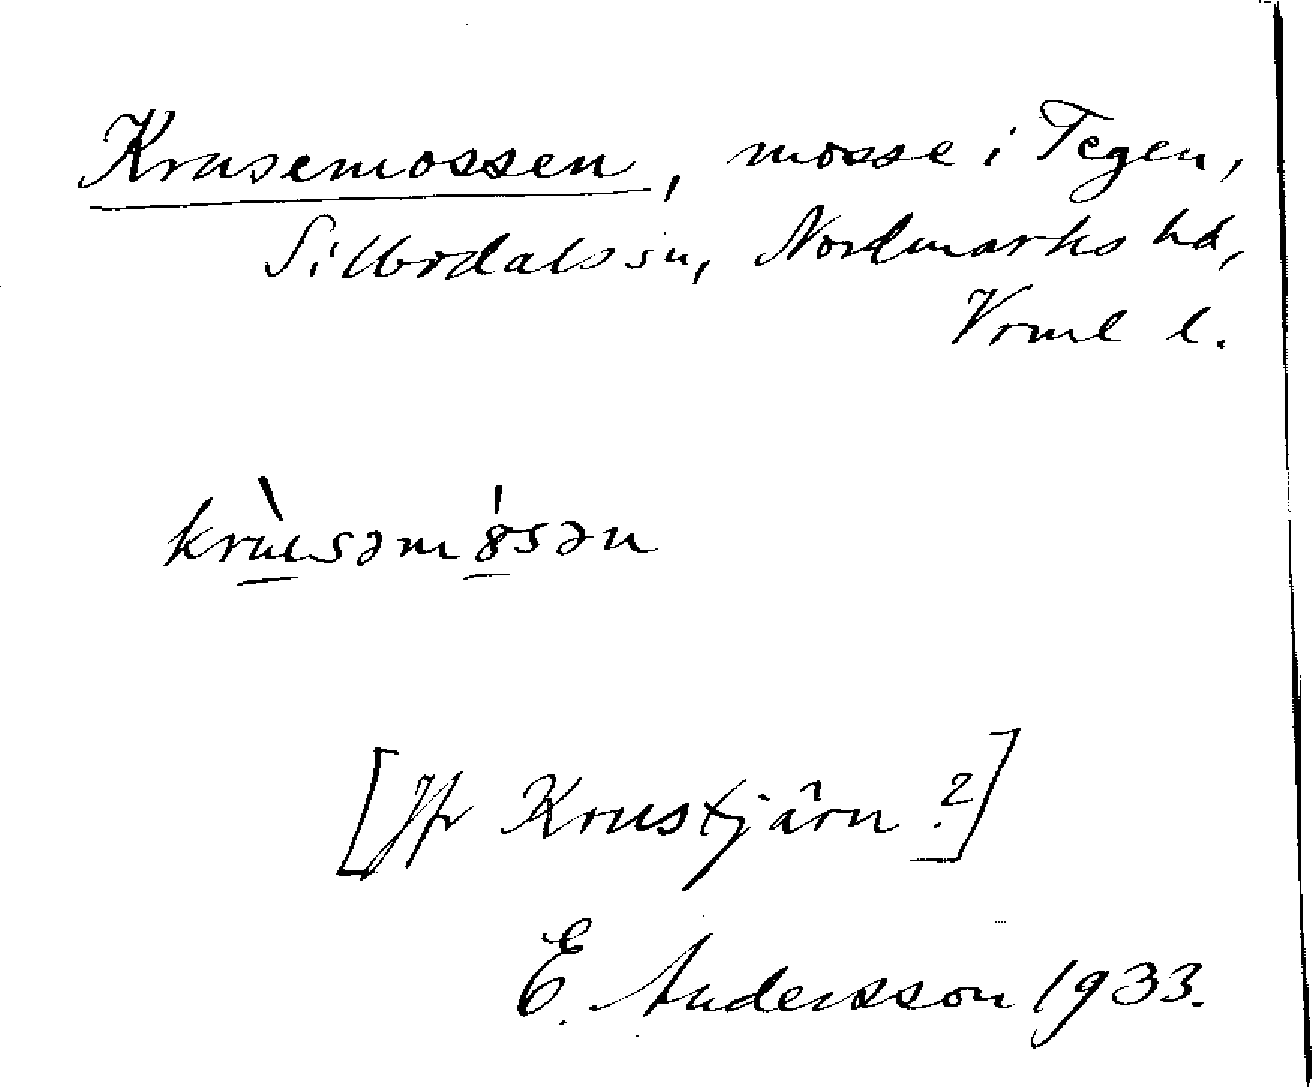 Krusemossen, mosse i Tegen,
Silbodals sn, Nordmarks hd,
Vrml l.
krùsəmósən
[Jfr Krustjärn?]
E. Andersson 1933.